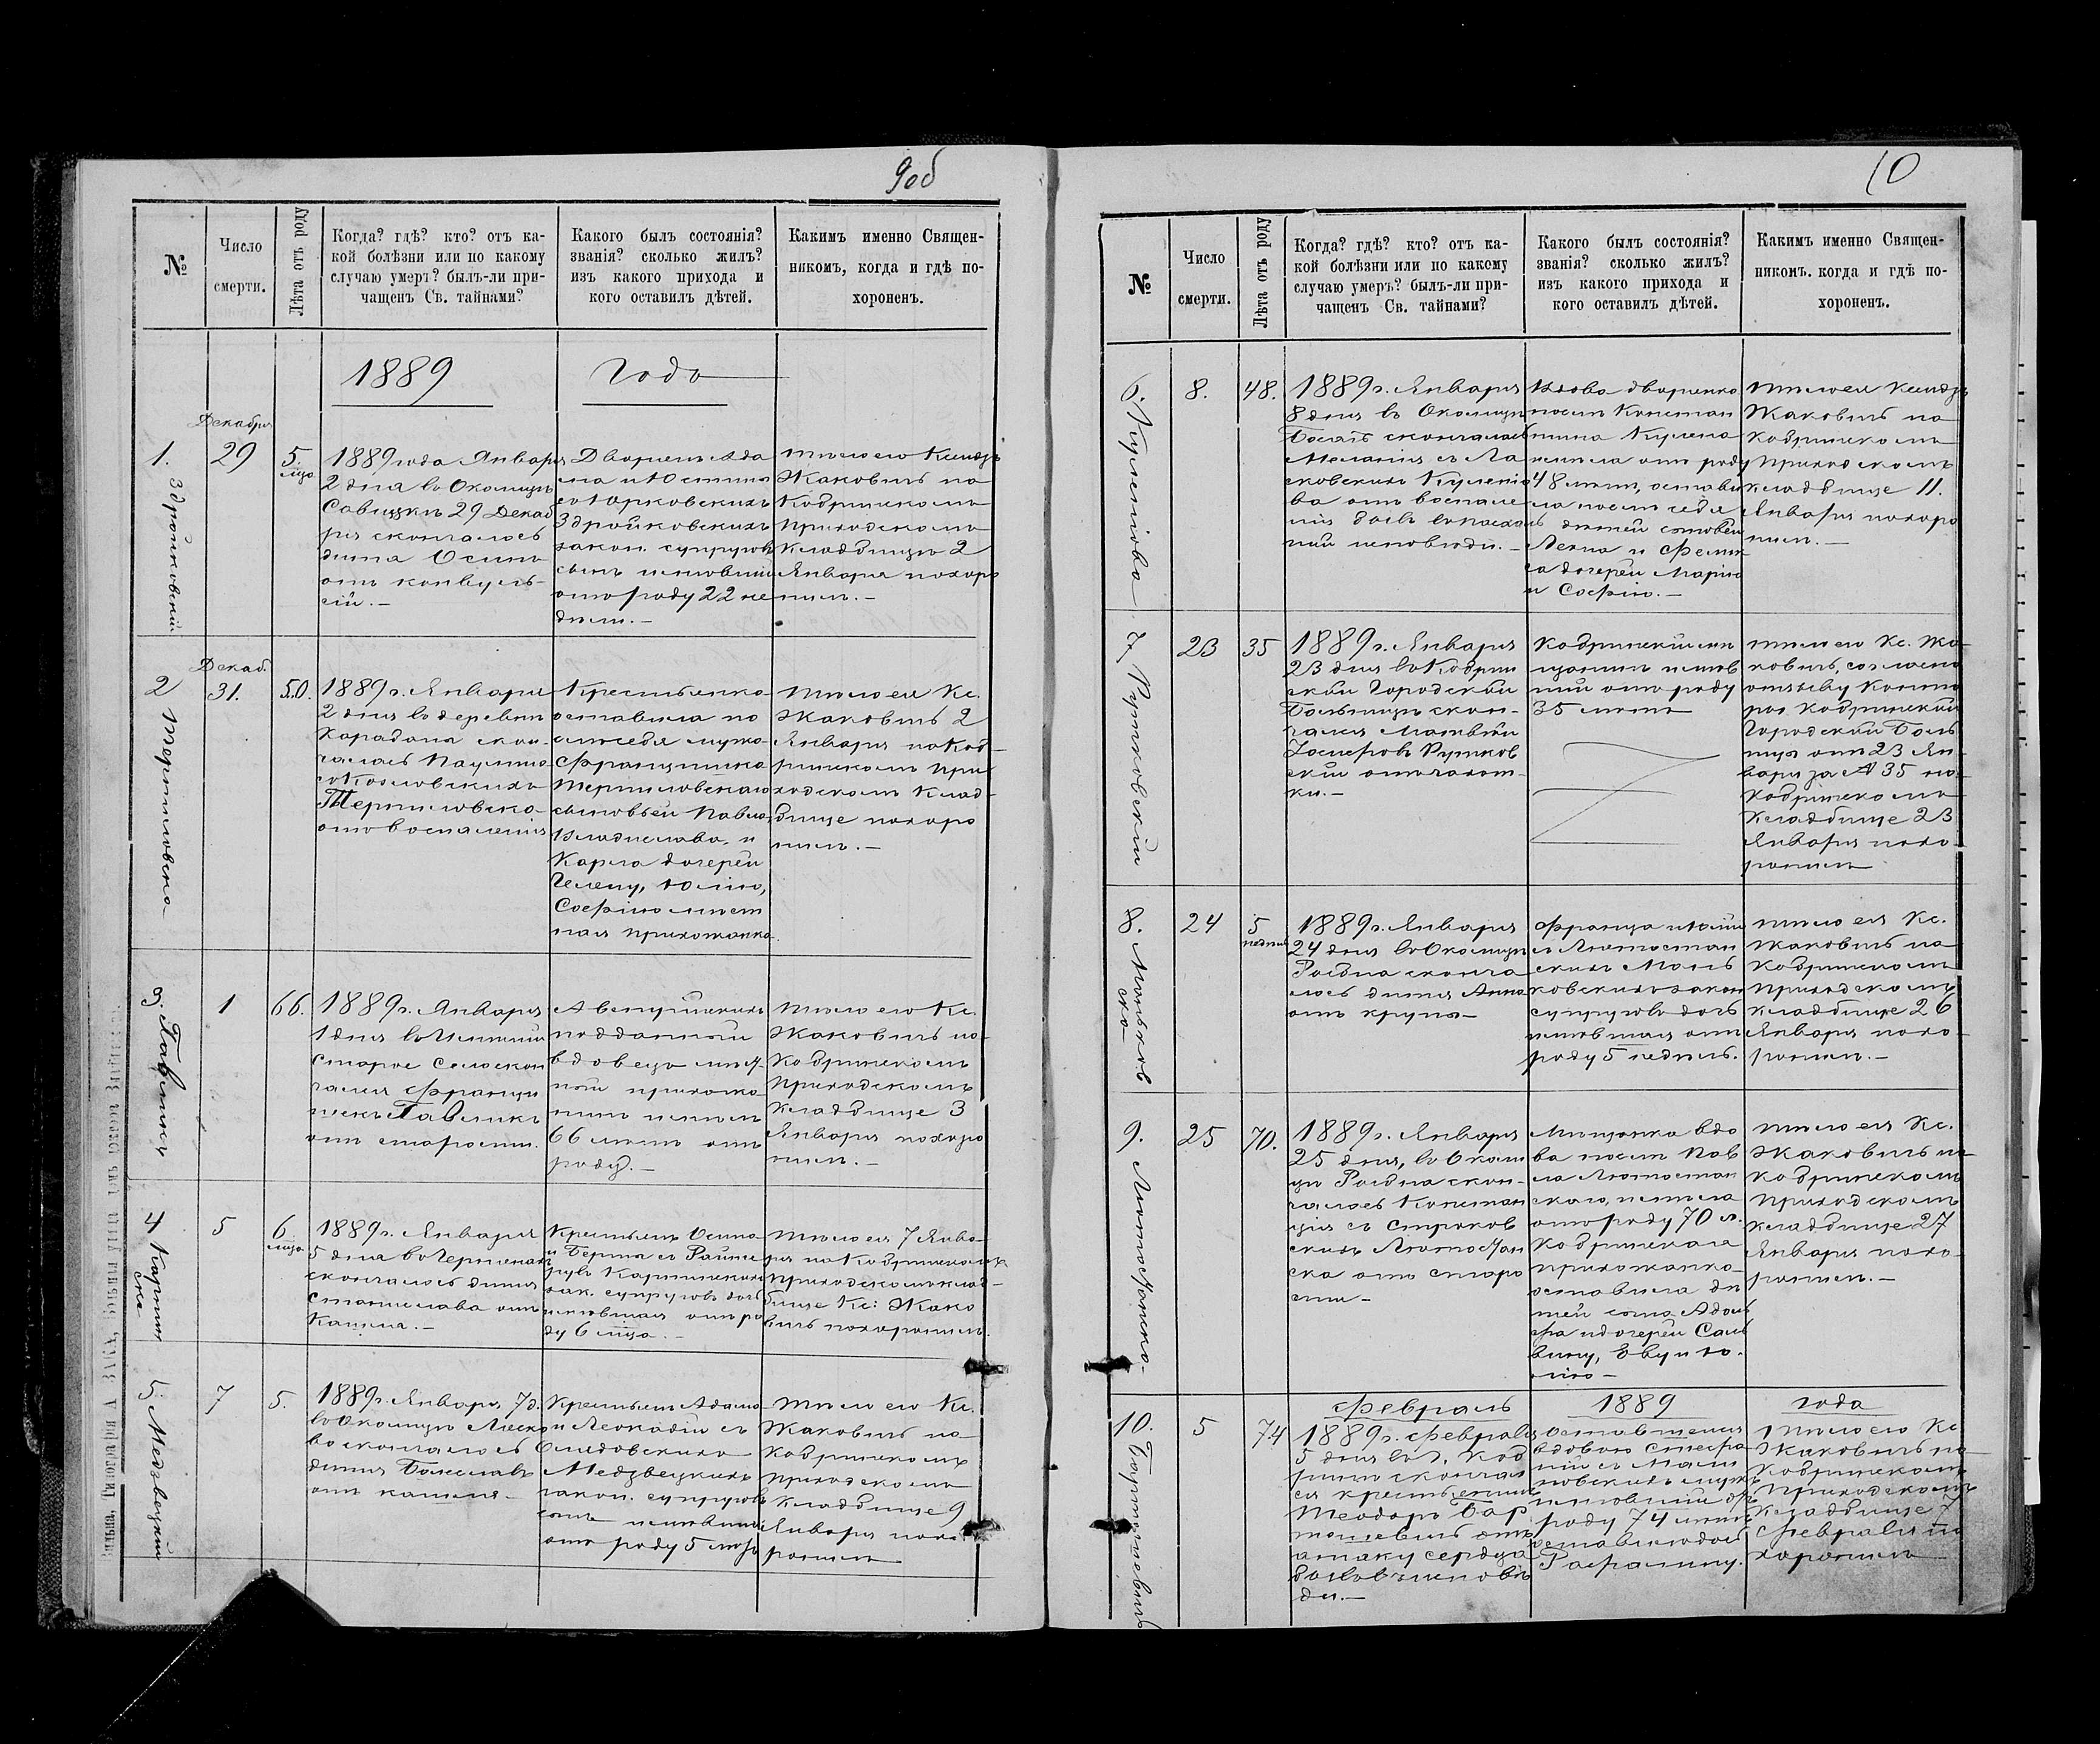 9об
№
Число
смерти.
Лѣта отъ роду
Когда? гдѣ? кто? отъ ка-
кой болѣзни или по какому
случаю умеръ? былъ-ли при-
чащенъ Св. тайнами?
Какого былъ состоянія?
званія? сколько жилъ?
изъ какого прихода и
кого оставилъ дѣтей.
Какимъ именно Священ-
никомъ, когда и гдѣ по-
хороненъ.
1889
года
1.
Здройковскій
Декабря
29
5
мцо
1889 года Января
2 дня въ Околицѣ
Савицкъ 29 Декаб
ря скончалось
дитя Осипъ
отъ конвуль-
сій.—
Дворянъ Ада
ма и Юстины
съ Юрковскихъ
Здройковскихъ
закон. супруговъ
сынъ имѣвшій
отъ роду 22 не
дѣли.—
тѣло его Ксендзъ
Жаковичъ на
Кобринскомъ
приходскомъ
кладбищѣ 2
Января похоро
нилъ.—
2
Термиловска
Декаб.
31.
50.
1889 г. Января
2 дня въ деревнѣ
скон-
чалась Паулина
съ Козловскихъ
Термиловска
отъ воспаленія
Крестьянка
оставила по
слѣ себя мужа
Францишка
Термиловскаго
сыновьей Павла,
Владислава, и
Карла дочерей
Гелену, Юлію,
Софію мѣст
ная прихожанка.
тѣло ея Кс.
Жаковичъ 2
Января на Коб-
ринскомъ при
ходскомъ клад-
бище похоро
нилъ.—
3.
Гавликъ
1
66.
1889 г. Января
1 дня въ Имѣніи
Старое Село скон
чался Францы
шекъ Гавликъ
отъ старости.
Австрійскихъ
подданный
вдовецъ мѣст-
ный прихожа
нинъ имѣлъ
66 лѣтъ отъ
роду.—
тѣло его Кс.
Жаковичъ на-
Кобринскомъ
приходскомъ
кладбище 3
Января похоро
нилъ.—
4
Карпин
ска
5
6
мцо.
1889 г. Января
5 дня въ
скончалось дитя
Станислава отъ
кашля.—
Крестьянъ Осипа
и Берты съ
закон. супруговъ дочь
имѣвшая отъ ро
ду 6 мцо.—
тѣло ея 7 Янва-
ря на Кобринскомъ
приходскомъ клад-
бище Кс: Жако
вичъ похоронилъ.
5.
Медзвецкій
7
5.
1889 г. Января 7 д.
въ Околицѣ
скончалось
дитя Болеславъ
отъ кашля—
Крестьянъ Адама
и Леокадіи съ
Медзвецкихъ
закон. супруговъ
сынъ имѣвшій
отъ роду 5 лѣтъ
тѣло его Кс.
Жаковичъ на-
Кобринскомъ
приходскомъ
кладбище 9
Января похо
ронилъ
10
№
Число
смерти.
Лѣта отъ роду
Когда? гдѣ? кто? отъ ка-
кой болѣзни или по какому
случаю умеръ? былъ-ли при-
чащенъ Св. тайнами?
Какого былъ состоянія?
званія? сколько жилъ?
изъ какого прихода и
кого оставилъ дѣтей.
Какимъ именно Священ-
никомъ. когда и гдѣ по-
хороненъ.
6.
Куленіова
8.
48.
1889 г. Января
8 дня въ Околицѣ
скончалась
Меланія съ Ла
сковскихъ
отъ воспале
нія бывъ
исповѣди.—
Вдова дворянка
послѣ Констан
тина
имѣла отъ роду
48 лѣтъ, остави
ла послѣ себя
дѣтей сыновей
Леона и Феликса
дочерей Марію
и Софію.—
тѣло ея Ксендзъ
Жаковичъ на
Кобринскомъ
приходскомъ
кладбище 11.
Января похоро
нилъ.—
7.
Рутковскій
23
35
1889 г. Января
23 дня въ Кобрин
ской Городской
Больницѣ скон-
чался Матвѣй
Рутков
скій отъ чахот-
ки.—
Кобринскій мѣ
щанинъ имѣв
шій отъ роду
35 лѣтъ
тѣло его Кс. Жа-
ковичъ, согласно
отзыву Конто
ры Кобринской
Городской Боль
ницы отъ 23 Ян-
варя за № 35 на-
Кобринскомъ
кладбище 23
Января похо-
ронилъ
8.
Маньков
ска
24
5
недѣль
1889 г. Января
24 дня въ Околицѣ
Рогозна сконча
лось дитя Анна
отъ крупы—
Франца и Юліи
съ Лютостан
скихъ
закон
супруговъ дочь
имѣвшая отъ
роду 5 недѣль.
тѣло ея Кс.
Жаковичъ на
Кобринскомъ
приходскомъ
кладбище 26
Января похо-
ронилъ.—
9.
Лютостанска
25
70.
1889 г. Января
25 дня, въ Околи
цѣ Рогозна скон-
чалась Констан
ція съ
скихъ Лютостан
ска отъ старо
сти—
Мѣщанка вдо
ва послѣ Пав
ла Лютостан
скаго, имѣла
отъ роду 70 л.
Кобринская
прихожанка
оставила дѣ
тей сына Адоль
фа и дочерей Саль
вину, Еву и Ю-
лію—
тѣло ея Кс.
Жаковичъ на-
Кобринскомъ
приходскомъ
кладбище 27
Января похо-
ронилъ.—
Февраль
1889
года
10.
Бартошевичъ
5
74
1889 г. Февраля
5 дня въ г. Коб
ринѣ скончал
ся крестьянинъ
Теодоръ Бар
тошевичъ отъ
атаку сердца
бывъ въ исповѣ
ди.—
Оставшеюся
вдовою Стефа
нія съ Мали
новскихъ мужъ
имѣвшій отъ
роду 74 лѣтъ
Рафалину.
тѣло его Кс
Жаковичъ на
Кобринскомъ
приходскомъ
кладбище 7
Февраля по
хоронилъ